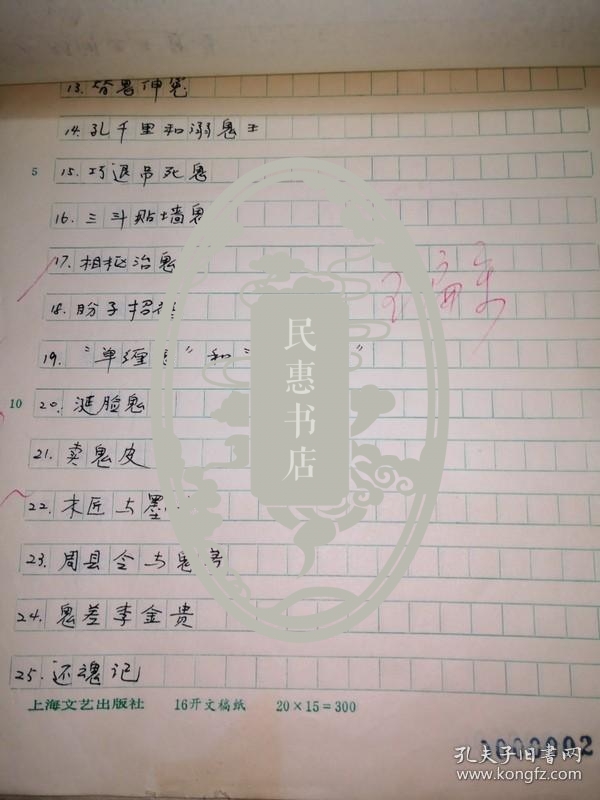 13. 替鬼伸冤
14. 孔千里和溺鬼王
5 15. 巧退吊死鬼
16. 三斗贴墙鬼
17. 相柩治鬼
18. 盼子招
19. "单 " 和 " "
10 20. 涎脸鬼
21. 卖鬼皮
22. 木匠与墨
23. 周县令与鬼
24. 鬼差李金贵
25. 还魂记
上海文艺出版社 16开文稿纸 20×15=300
民惠书店
孔夫子旧书网
www.kongfz.com